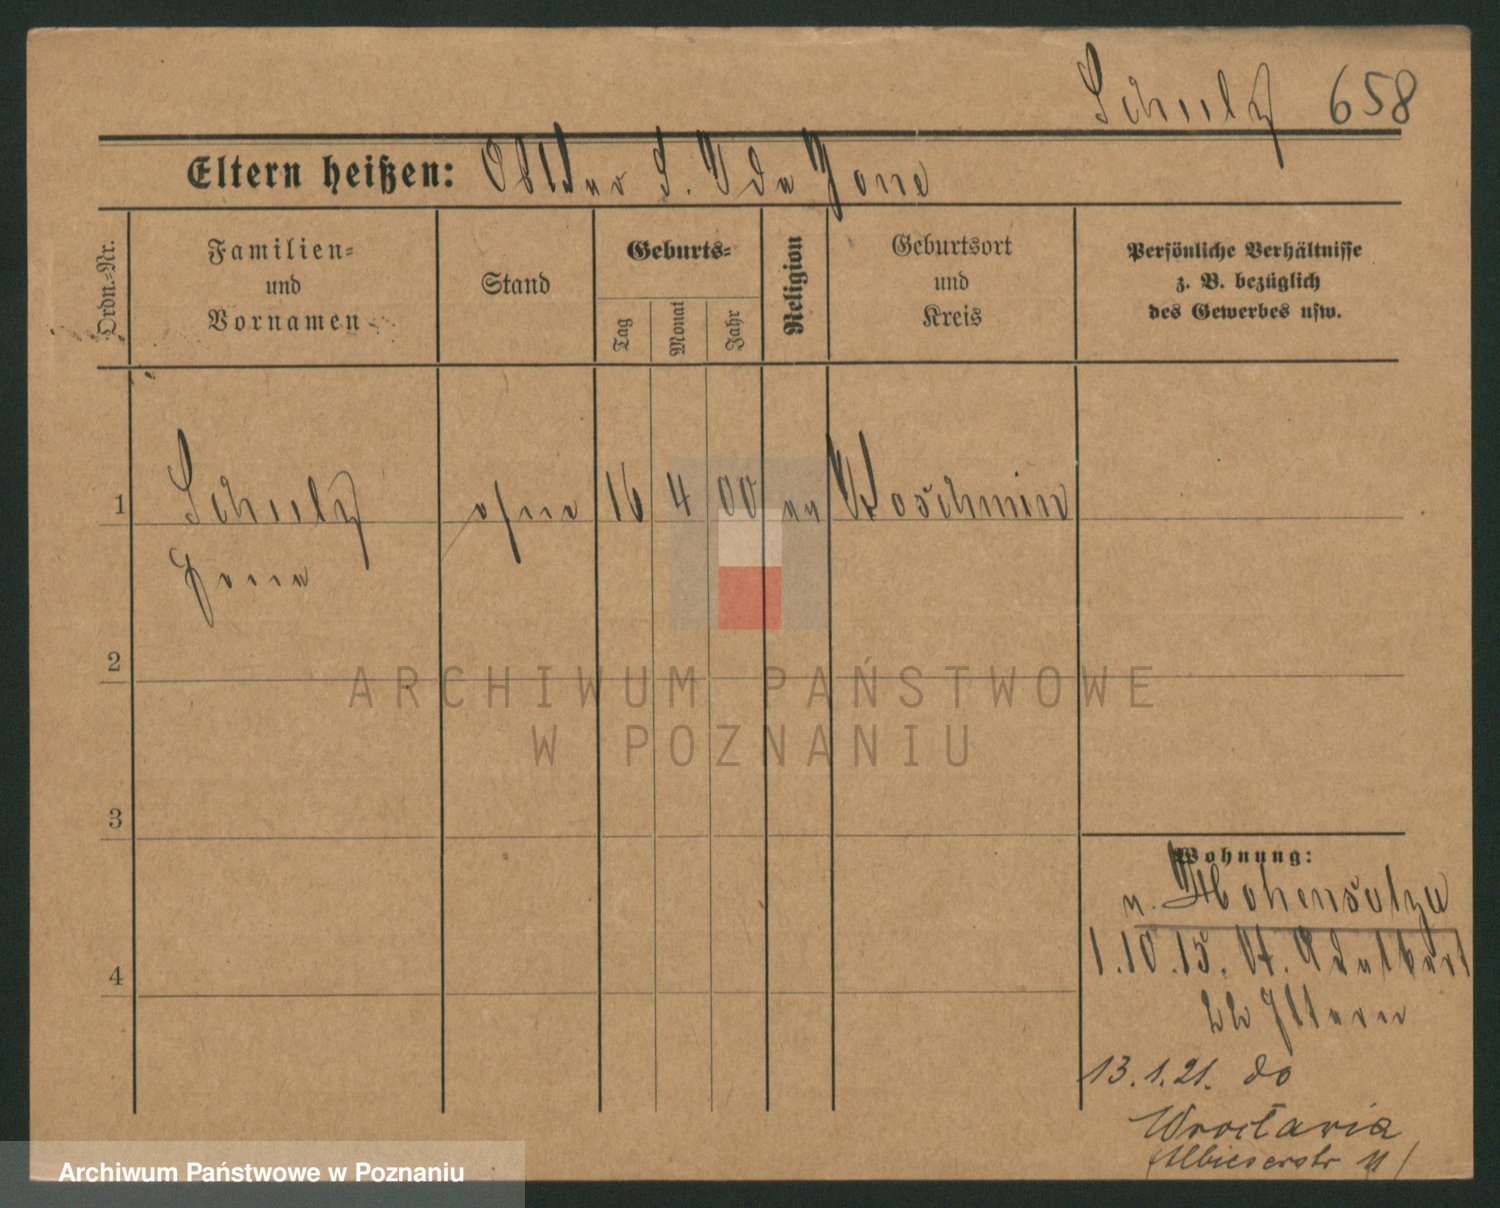 Schulz 658
Eltern heißen:
Ordn.-Nr.
Familien-
und
Vornamen
Stand
Geburts-
Tag
Monat
Jahr
Religion
Geburtsort
und
Kreis
Persönliche Verhältnisse
z. B. bezüglich
des Gewerbes usw.
1 Schulz ohne 16 4 00 Koschmin
2
3
4
Wohnung:
n. Hohensalza
1.10.15. St. Adalbert
22 Eltern
13.1.21. do
Wrocławia
ARCHIWUM PAŃSTWOWE
W POZNANIU
Archiwum Państwowe w Poznaniu